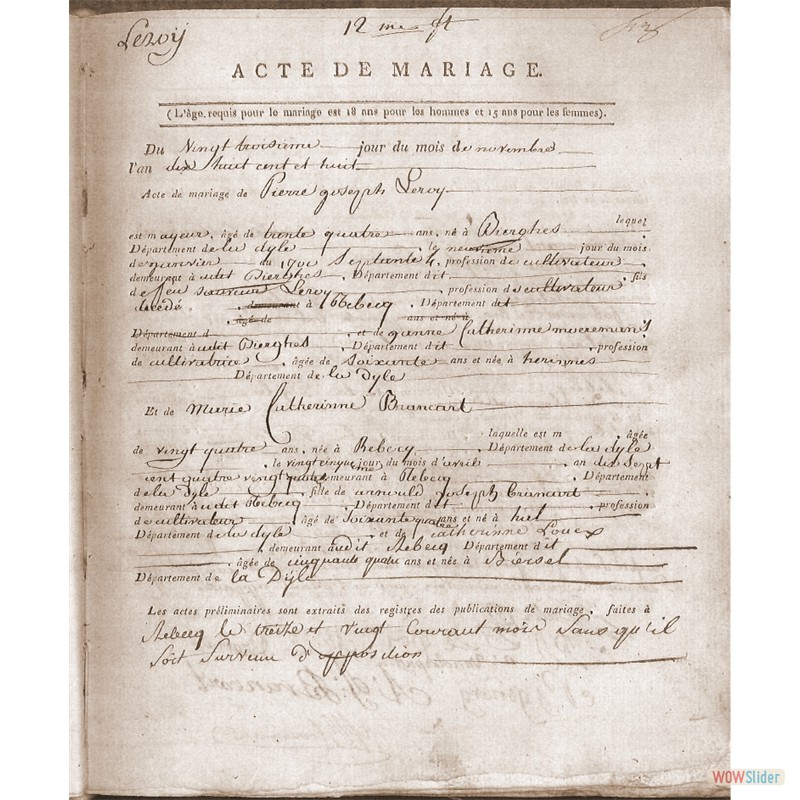 Leroy
12 me ft
ACTE DE MARIAGE.
(L'âge requis pour le mariage est 18 ans pour les hommes et 15 ans pour les femmes).
Du Vingt troisieme jour du mois de novembre
l'an dix huit cent et huit
Acte de mariage de Pierre joseph Leroy
lequel
est mayeur, âgé de trente quatre ans, né à Bierghes
Département de la dyle, le neuvieme jour du mois
de janvier du 1700 Septante 4, profession de cultivateur
demeurant à udit Bierghes, Département dit, fils
de feu Leroy, profession de cultivateur
décédé, demeurant à Rebecq, Département dt
, âgé de ans et né à
Département d, et de janne Catherinne
demeurant à udit Bierghes, Département dit, profession
de cultivatrice, âgée de soixante ans et née à herinnes
Département de la Dyle
Et de Marie Catherinne Brancart
laquelle est m âgée
de vingt quatre ans, née à Rebecq, Département de la dyle
, le vingt cinquieme jour du mois d'avril an dix Sept
cent quatre vingt quatre demeurant à Rebecq Département
de la dyle fille de arnould joseph brancart
demeurant à udit Rebecq, Département dit, profession
de cultivateur, âgé de soixante quatre ans et né à hal
Département de la dyle, et de Catherinne
, demeurant audit Rebecq Département dit
, âgée de cinquante quatre ans et née à Biersel
Département de la Dyle
Les actes préliminaires sont extraits des registres des publications de mariage, faites à
Rebecq le treize et vingt courant mois sans qu'il
soit survenu d'opposition
WOWSlider